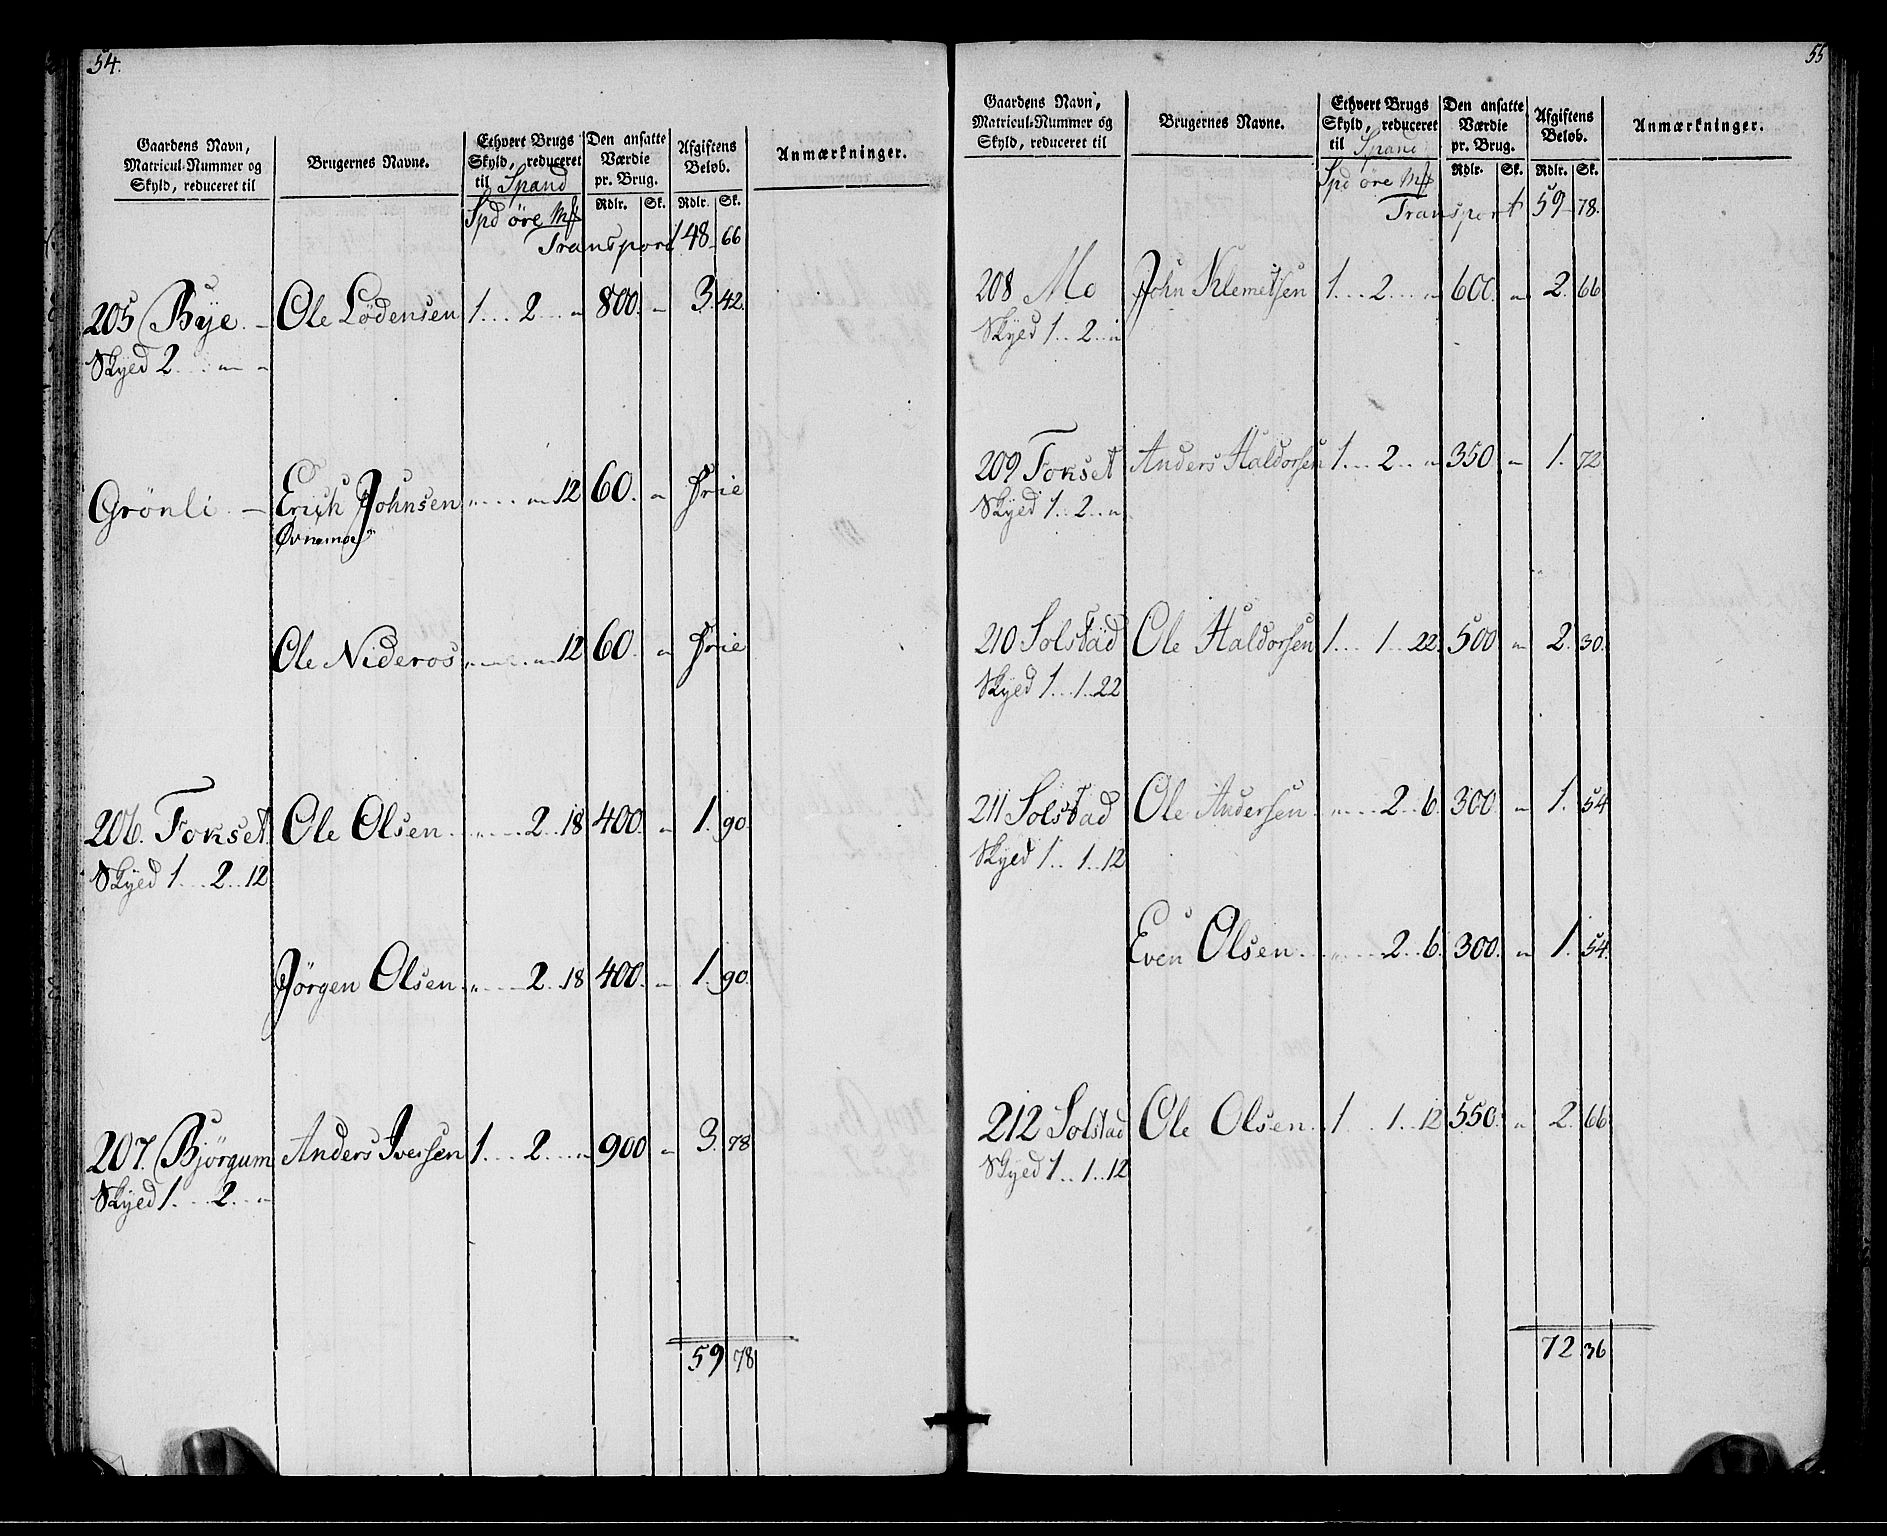 54.
Gaardens Navn, Matricul-Nummer og Skyld, reduceret til
Brugernes Navne.
Ethvert Brugs Skyld, reduceret til Spand
Den ansatte Værdie pr. Brug.
Afgiftens Beløb.
Anmærkninger.
Spd öre Mk Rdlr. Sk. Rdlr. Sk.
Transport 48 66
205 Bye Ole Lödensen 1 2 " 800 " 3. 42.
Skyed 2 " "
Grönli Erich Johnsen " " 12 60. " Frie
Øvnemoe
Ole Nideros " " 12 60. " Frie
206. Fokset Ole Olsen " 2 18 400. " 1. 90.
Skyed 1 2 12
Jörgen Olsen " 2 18 400. " 1. 90.
207. Björgum Anders Iversen 1 2 " 900 " 3. 78
Skyed 1 2 "
59 78
55
Gaardens Navn, Matricul-Nummer og Skyld, reduceret til
Brugernes Navne.
Ethvert Brugs Skyld, reduceret til Spand
Den ansatte Værdie pr. Brug.
Afgiftens Beløb.
Anmærkninger.
Spd öre Mk Rdlr. Sk. Rdlr. Sk.
Transport 59 78.
208 Mo John Klemetsen 1 2 " 600. " 2. 66
Skyed 1 2 "
209 Fokset Anders Haldorsen 1 2 " 350. " 1. 72
Skyed 1 2 "
210 Solstad Ole Haldorsen 1 1 22 500 " 2. 30.
Skyed 1 1 22
211 Solstad Ole Andersen " 2 6 300 " 1. 54
Skyed 1 1 12
Even Olsen " 2 6 300. " 1. 54.
212 Solstad Ole Olsen 1 1 12 550. " 2. 66
Skyed 1 1 12
72 36